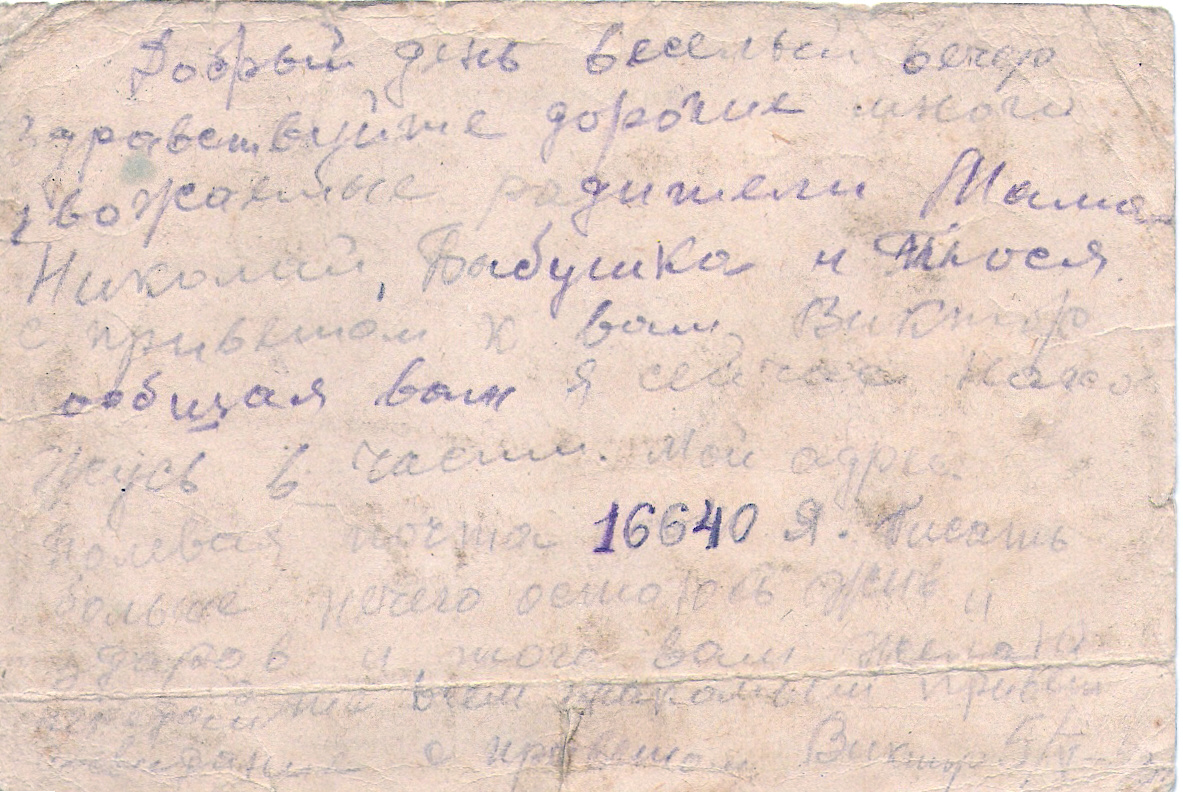 Добрый день веселый вечер
здравствуйте дорогие много
уважаемые родители Мама
Николай, Бабушка и Тося
с приветом к вам Виктор
сообщая вам я сейчас нахо
жусь в части. Мой адрес
полевая почта 16640 Я. Писать
больше нечего остаюсь жив и
здоров и того вам желаю
передайте всем знакомым привет
с приветом Виктор